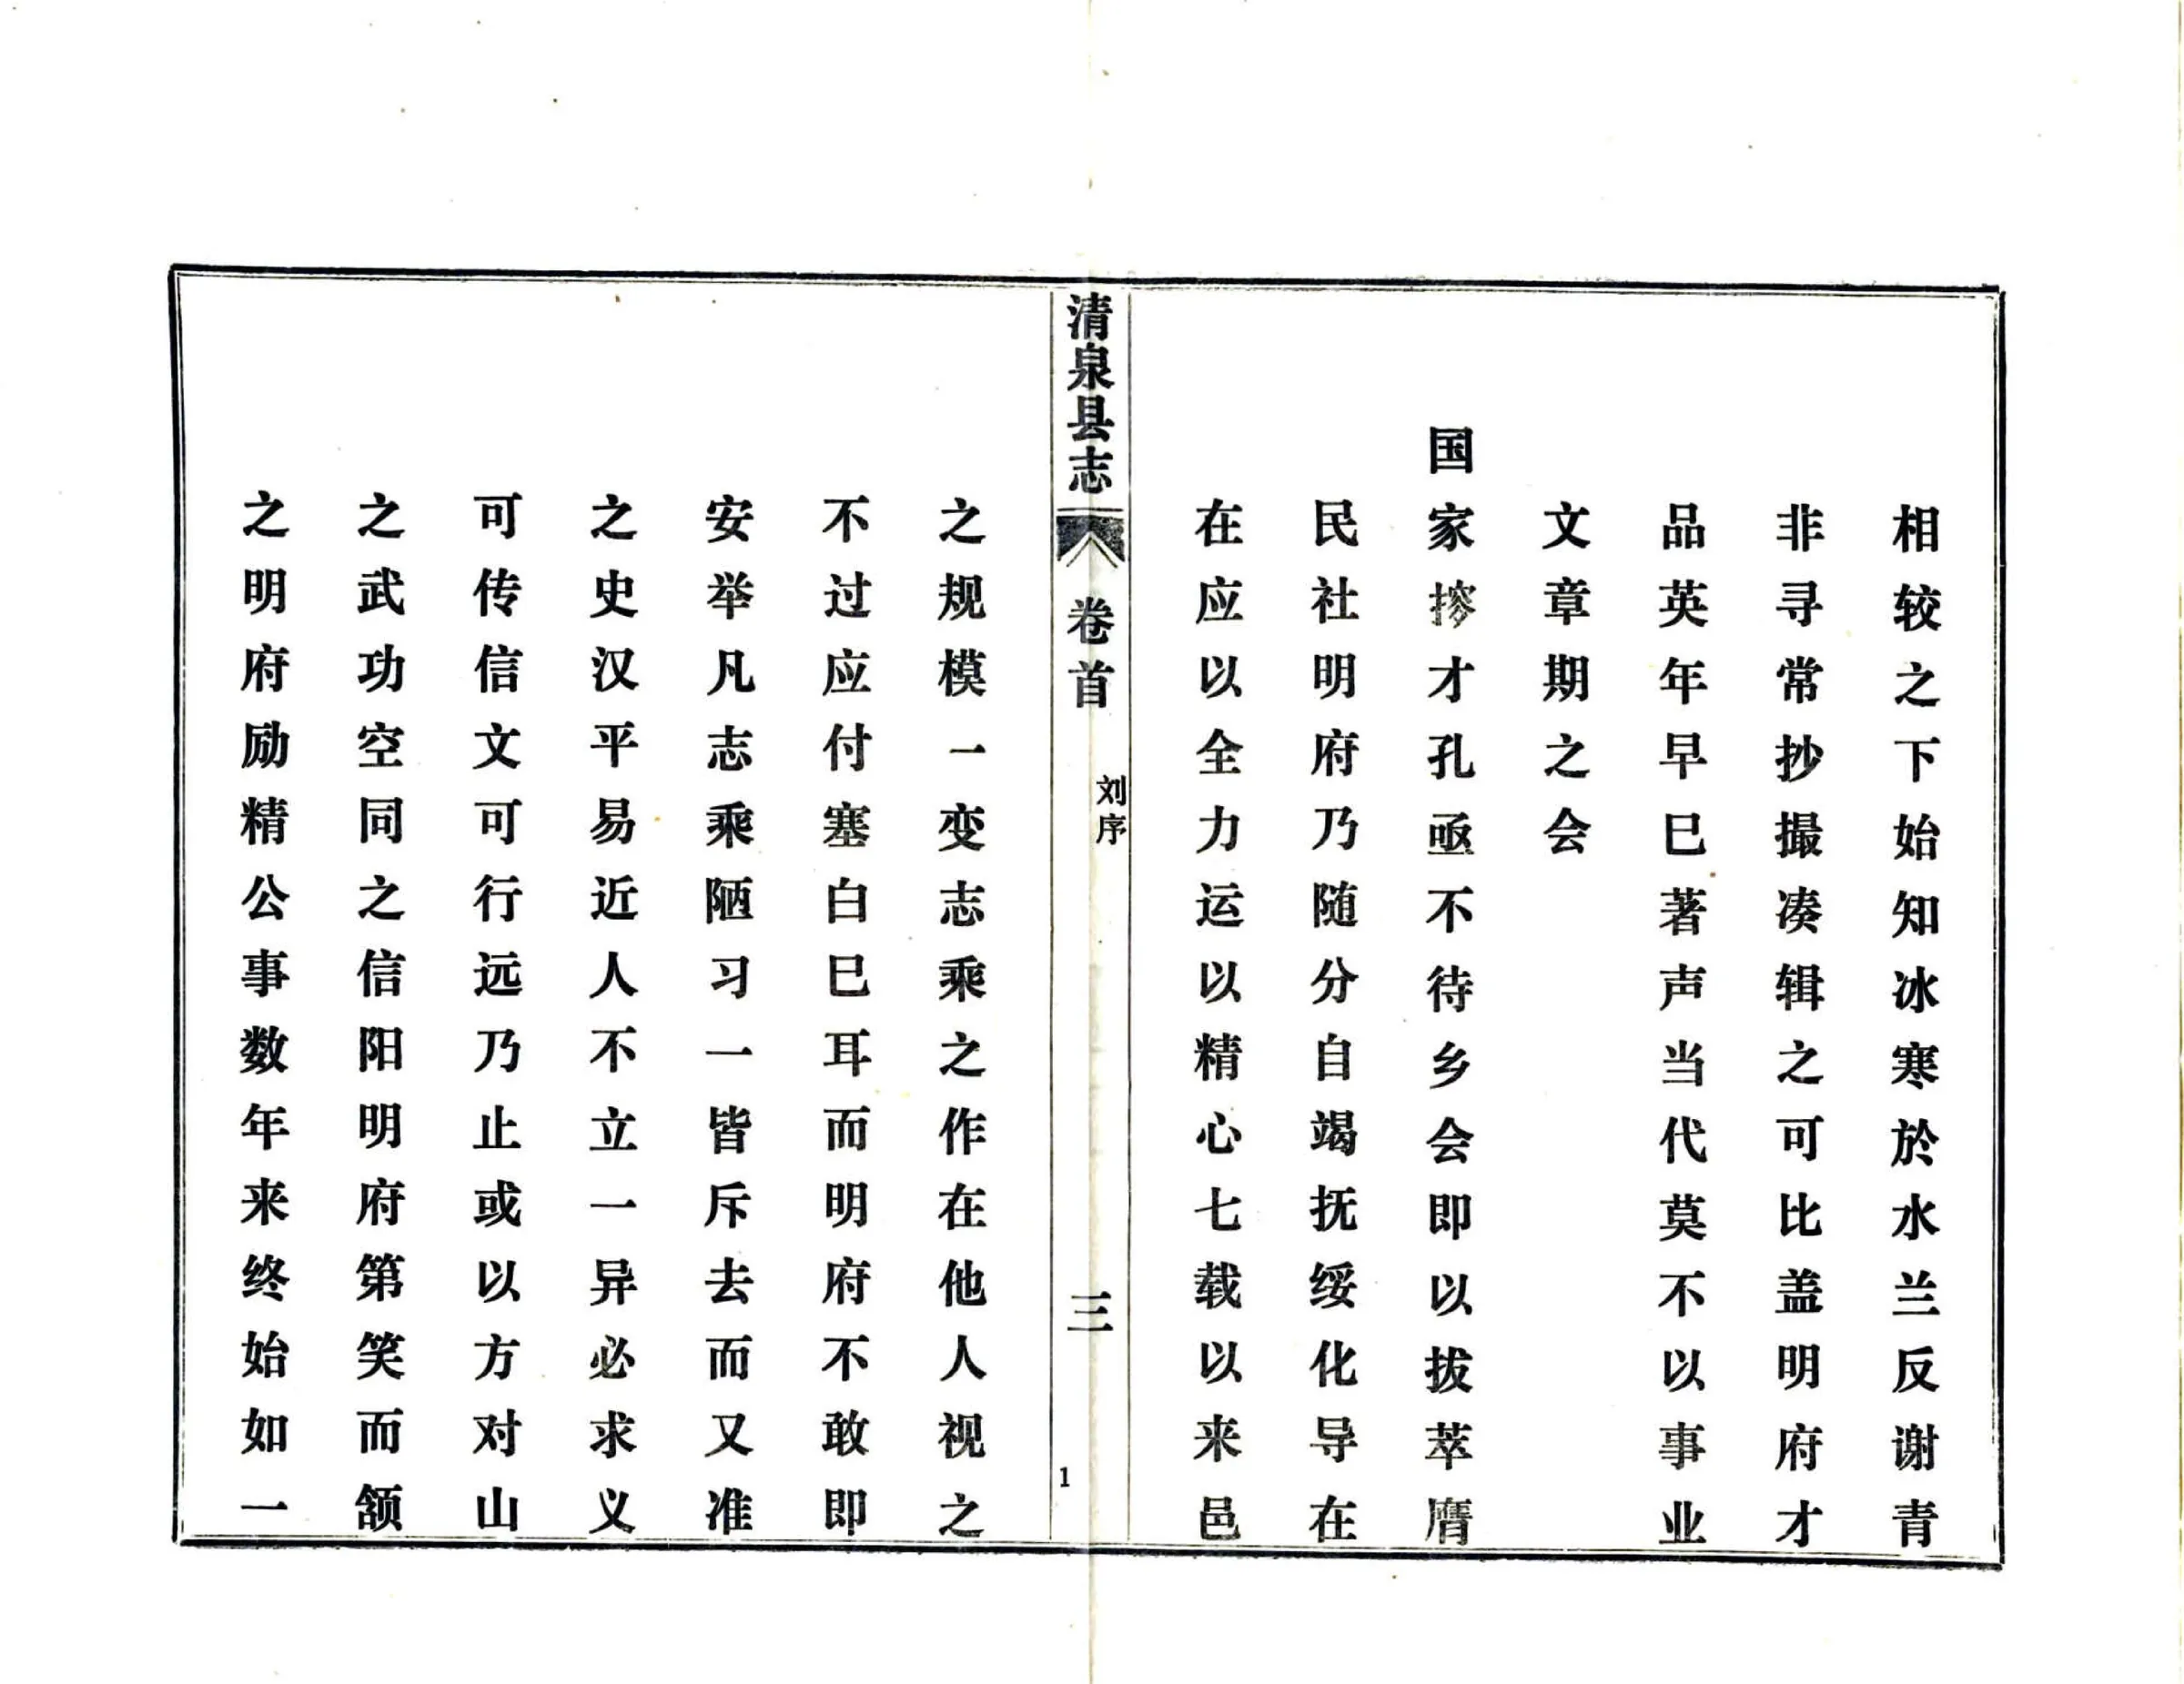 相较之下始知冰寒於水兰反谢青
非寻常抄撮凑辑之可比盖明府才
品英年早巳著声当代莫不以事业
文章期之会
国家摎才孔亟不待乡会即以拔萃膺
民社明府乃随分自竭抚绥化导在
在应以全力运以精心七载以来邑
清泉县志
卷首
刘序
三
1
之规模一变志乘之作在他人视之
不过应付塞白巳耳而明府不敢即
安举凡志乘陋习一皆斥去而又准
之史汉平易近人不立一异必求义
可传信文可行远乃止或以方对山
之武功空同之信阳明府第笑而颔
之明府励精公事数年来终始如一